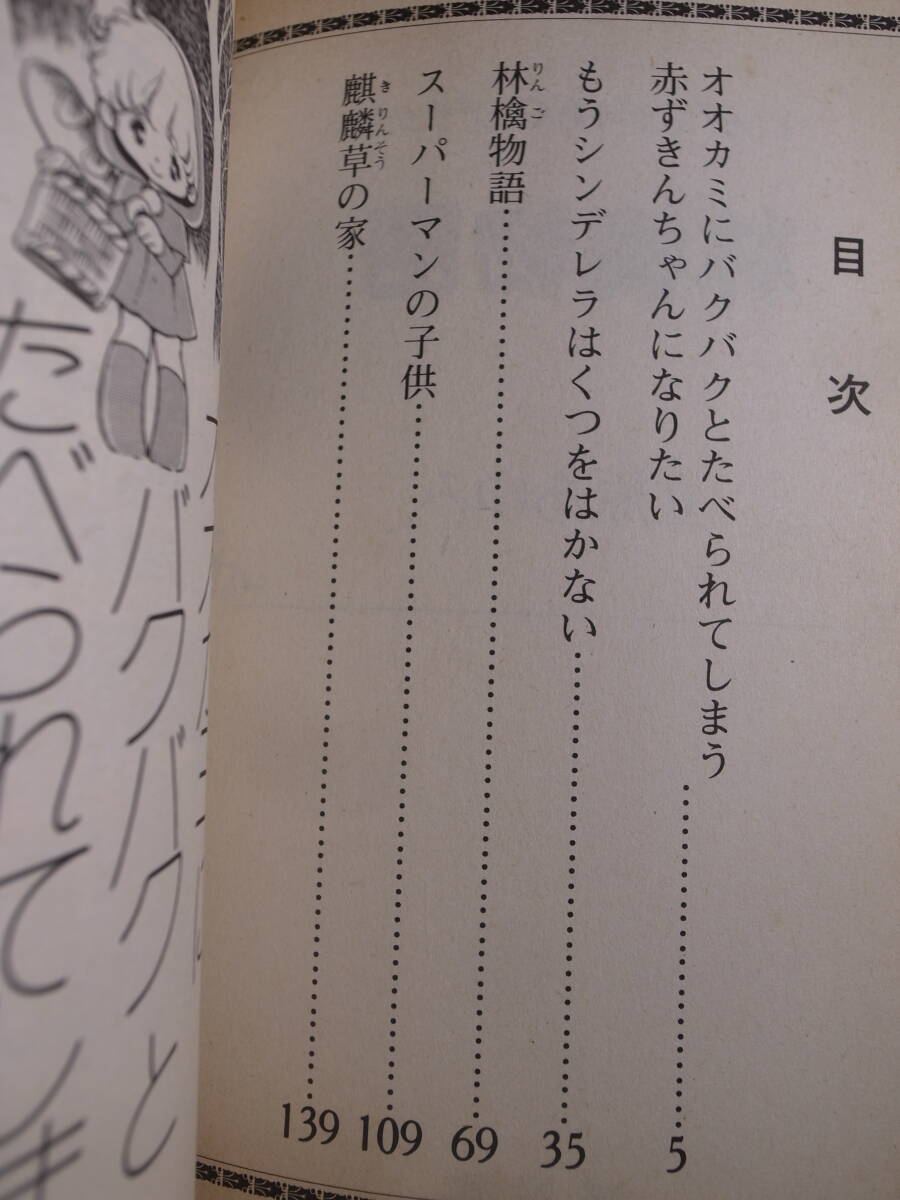 目次
オオカミにバクバクとたべられてしまう
赤ずきんちゃんになりたい……5
もうシンデレラはくつをはかない……35
林檎物語……69
りんご
スーパーマンの子供……109
麒麟草の家……139
きりんそう
バクバクと
たべられてしま